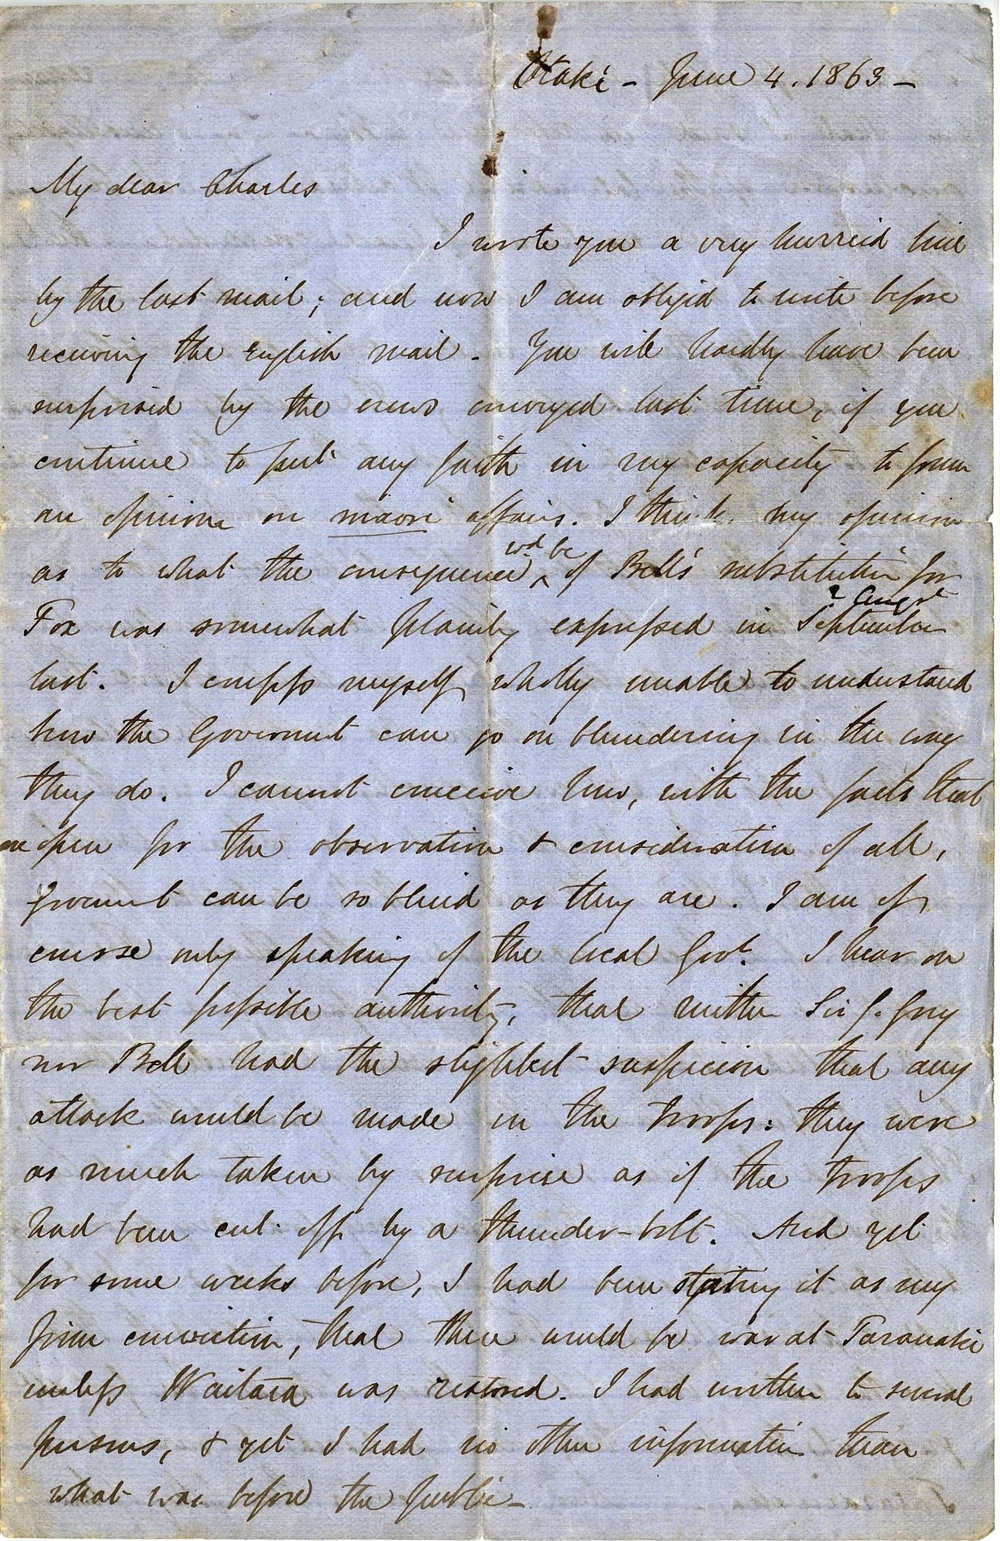 Otaki - June 4. 1863 -
My dear Charles
I wrote you a very hurried line
by the last mail; and now I am obliged to write before
receiving the English mail. You will hardly have been
surprised by the news conveyed last time, if you
continue to put any faith in my capacity to form
an opinion on maori affairs. I think my opinion
as to what the consequence wd be of Bell's substitution for
Fox was somewhat plainly expressed in September
? August
last. I confess myself wholly unable to understand
how the Governmt can go on blundering in the way
they do. I cannot conceive how, with the facts that
are open for the observation & consideration of all,
governmt can be so blind as they are. I am of
course only speaking of the local Govt. I hear on
the best possible authority, that neither Sir G. Grey
nor Bell had the slightest suspicion that any
attack would be made on the troops: they were
as much taken by surprise as if the troops
had been cut off by a thunder-bolt. And yet
for some weeks before, I had been stating it as my
firm conviction, that there would be war at Taranaki
unless Waitara was restored. I had written to several
persons, & yet I had no other information than
what was before the public -